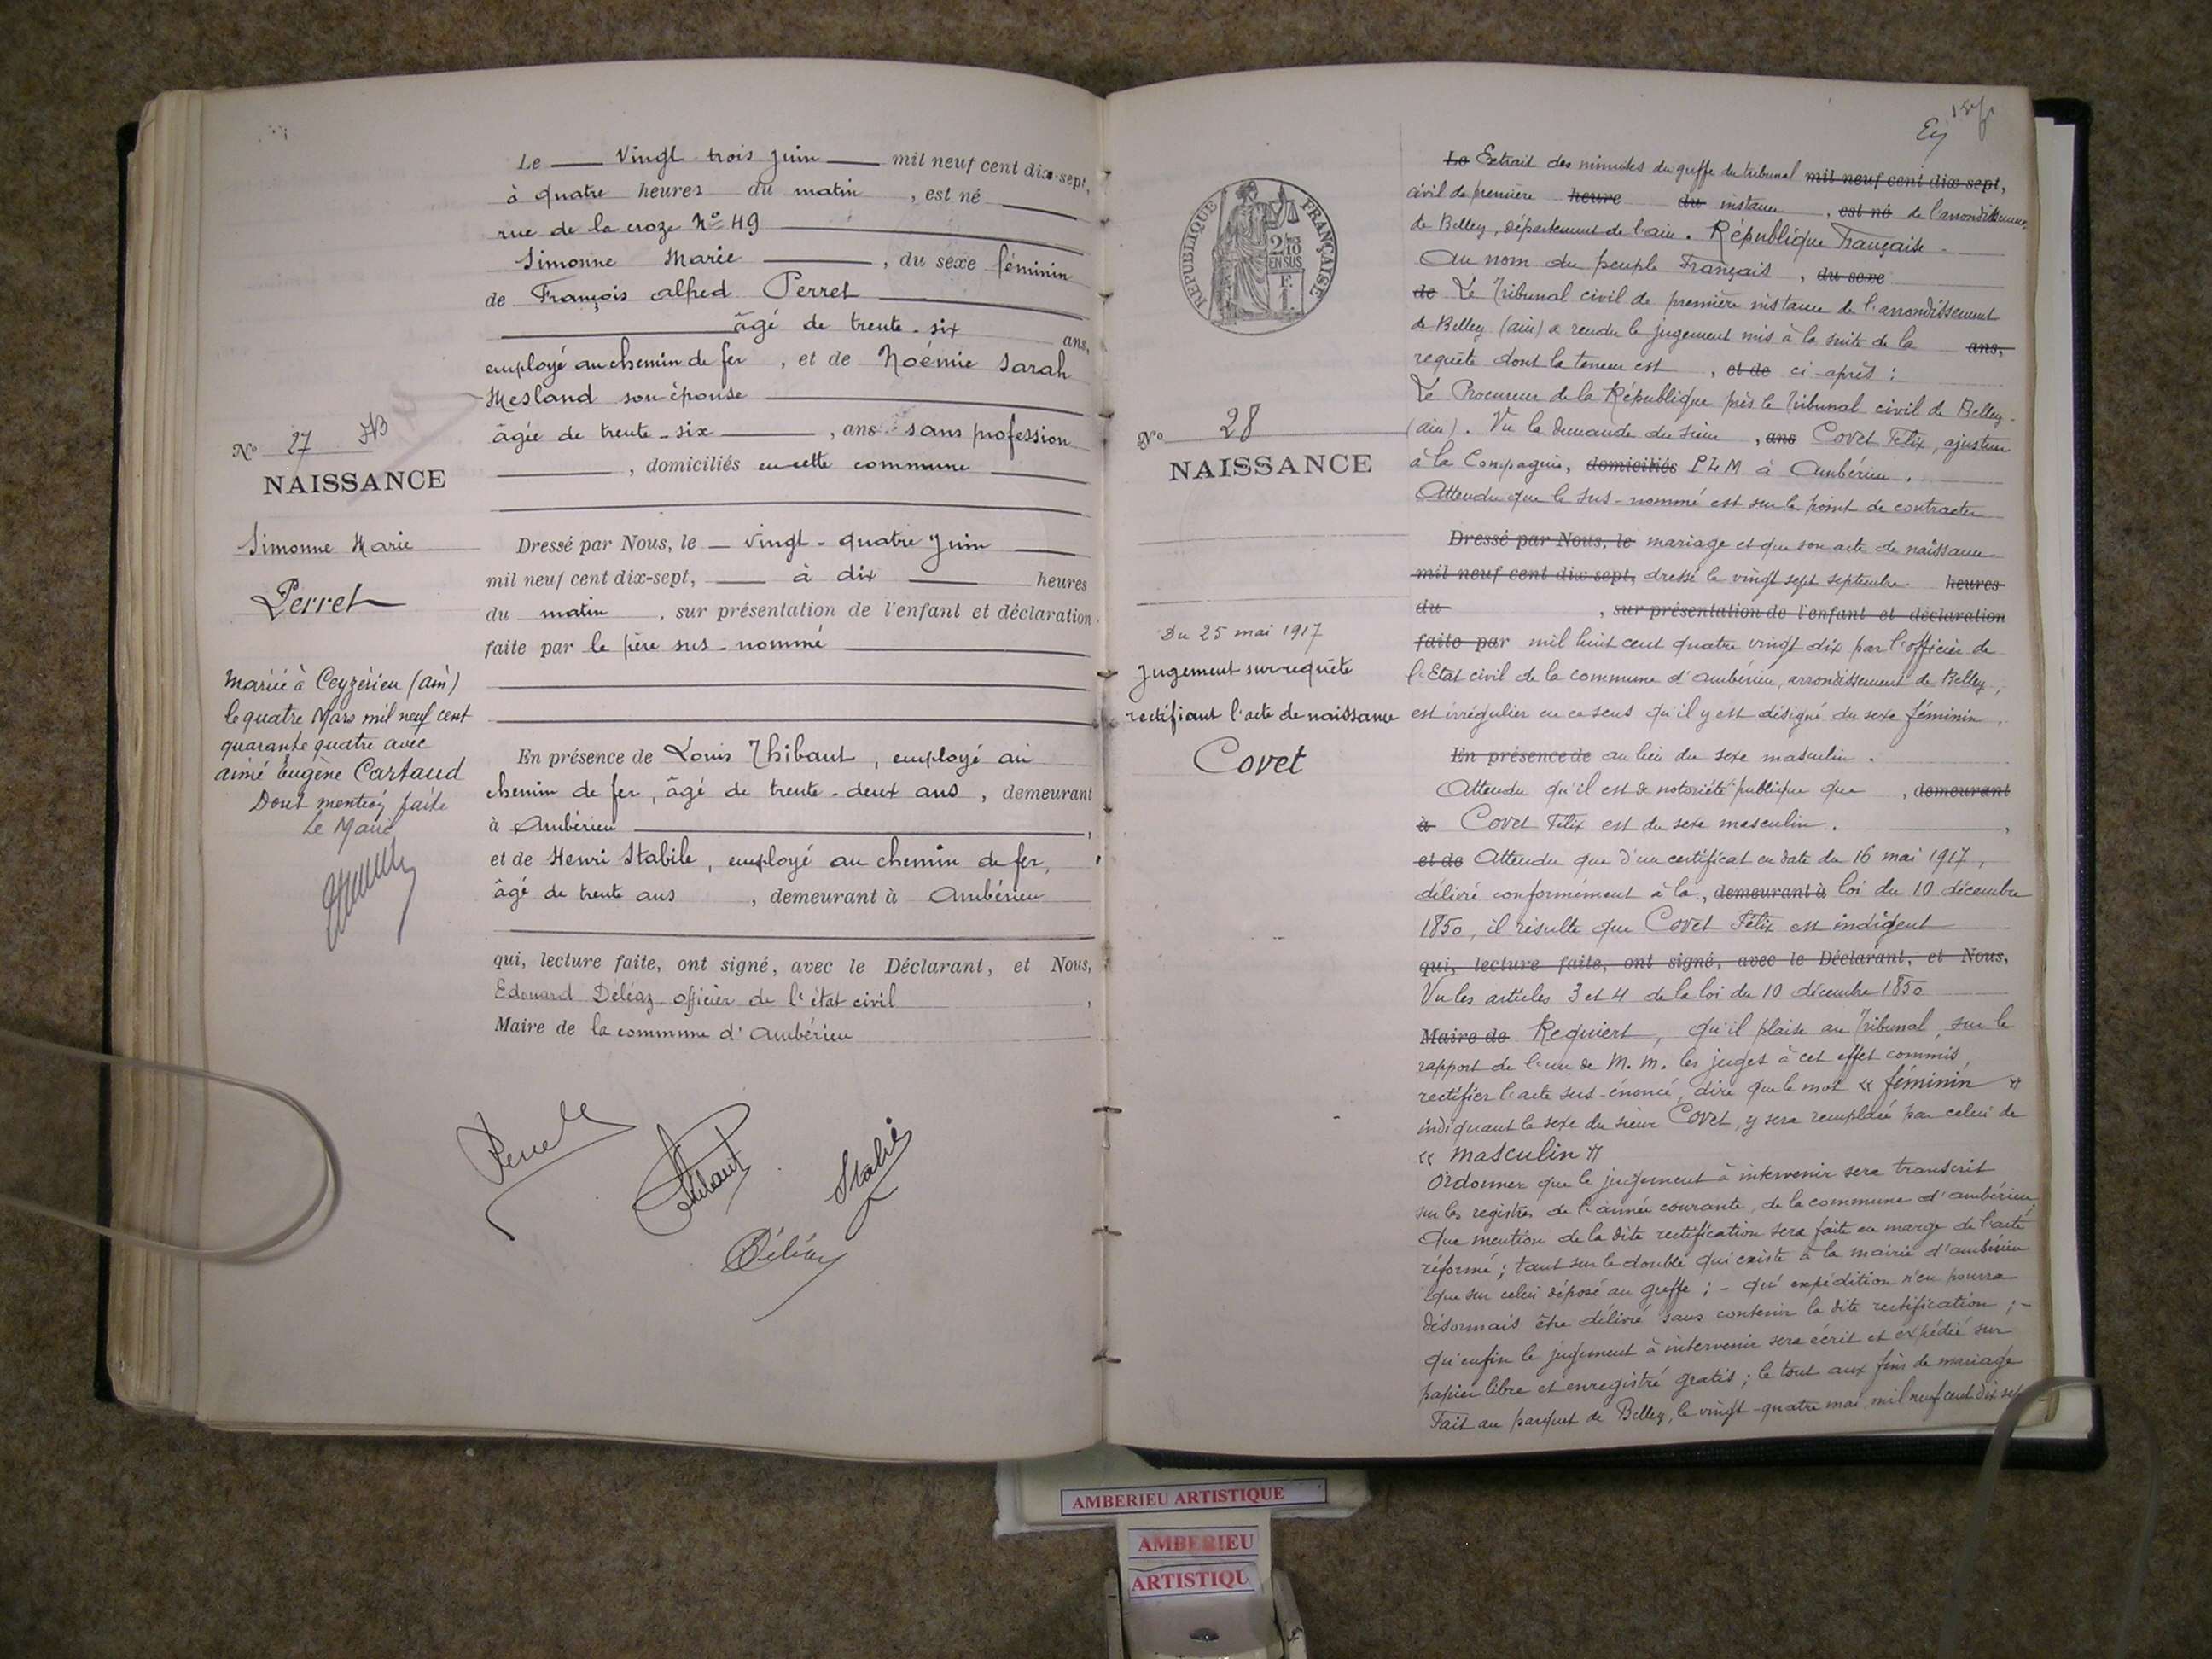 Le vingt trois juin mil neuf cent dix-sept,
à quatre heures du matin, est né
rue de la croze N° 49
Simonne Marie, du sexe féminin
de François Alfred Perret
âgé de trente-six ans,
employé au chemin de fer, et de Noémie Sarah
Mesland son épouse
âgée de trente-six, ans sans profession
, domiciliés en cette commune
N° 27
NAISSANCE
Simonne Marie
Perret
Mariée à Ceyzérieu (ain)
le quatre Mars mil neuf cent
quarante quatre avec
aimé Eugène Cartaud
Dont mention faite
Le Maire
Dressé par Nous, le vingt-quatre juin
mil neuf cent dix-sept, à dix heures
du matin, sur présentation de l'enfant et déclaration
faite par le père sus-nommé
En présence de Louis Thibaut, employé au
chemin de fer, âgé de trente-deux ans, demeurant
à Ambérieu,
et de Henri Stabile, employé au chemin de fer,
âgé de trente ans, demeurant à Ambérieu
qui, lecture faite, ont signé, avec le Déclarant, et Nous,
Edouard Deléaz officier de l'état civil,
Maire de la commune d'Ambérieu
N° 28
NAISSANCE
RÉPUBLIQUE FRANÇAISE
2/10 EN SUS
Du 25 mai 1917
Jugement sur requête
rectifiant l'acte de naissance
Covet
Le Extrait des minutes du greffe du tribunal mil neuf cent dix-sept,
civil de première heure du instance, est né de l'arrondissement
de Belley, département de l'ain. République Française.
Au nom du peuple Français, du sexe
de Le Tribunal civil de première instance de l'arrondissement
de Belley (ain) a rendu le jugement mis à la suite de la ans,
requête dont la teneur est, et de ci-après :
Le Procureur de la République près le Tribunal civil de Belley
(ain). Vu la demande du sieur, ans Covet Félix, ajusteur
à la Compagnie, domiciliés PLM à Ambérieu.
Attendu que le sus-nommé est sur le point de contracter
Dressé par Nous, le mariage et que son acte de naissance
mil neuf cent dix-sept, dressé le vingt sept septembre heures
du, sur présentation de l'enfant et déclaration
faite par mil huit cent quatre vingt dix par l'officier de
l'Etat civil de la commune d'Ambérieu, arrondissement de Belley,
est irrégulier en ce sens qu'il y est désigné du sexe féminin,
En présence de au lieu du sexe masculin.
Attendu qu'il est de notoriété publique que, demeurant
à Covet Félix est du sexe masculin.,
et de Attendu que d'un certificat en date du 16 mai 1917,
délivré conformément à la, demeurant à loi du 10 décembre
1850, il résulte que Covet Félix est indigent
qui, lecture faite, ont signé, avec le Déclarant, et Nous,
Vu les articles 3 et 4 de la loi du 10 décembre 1850
Maire de Requiert, qu'il plaise au Tribunal, sur le
rapport de l'un de M.M. les juges à cet effet commis,
rectifier l'acte sus-énoncé, dire que le mot « féminin »
indiquant le sexe du sieur Covet, y sera remplacé par celui de
« masculin »
Ordonner que le jugement à intervenir sera transcrit
sur les registres de l'année courante, de la commune d'Ambérieu,
Que mention de la dite rectification sera faite en marge de l'acte
réformé ; tant sur le double qui existe à la mairie d'Ambérieu
que sur celui déposé au greffe ; - qu'expédition n'en pourra
désormais être délivré sans contenir la dite rectification ; -
Qu'enfin le jugement à intervenir sera écrit et expédié sur
papier libre et enregistré gratis ; le tout aux fins de mariage
Fait au parquet de Belley, le vingt-quatre mai mil neuf cent dix sept
AMBERIEU ARTISTIQUE
AMBERIEU
ARTISTIQU